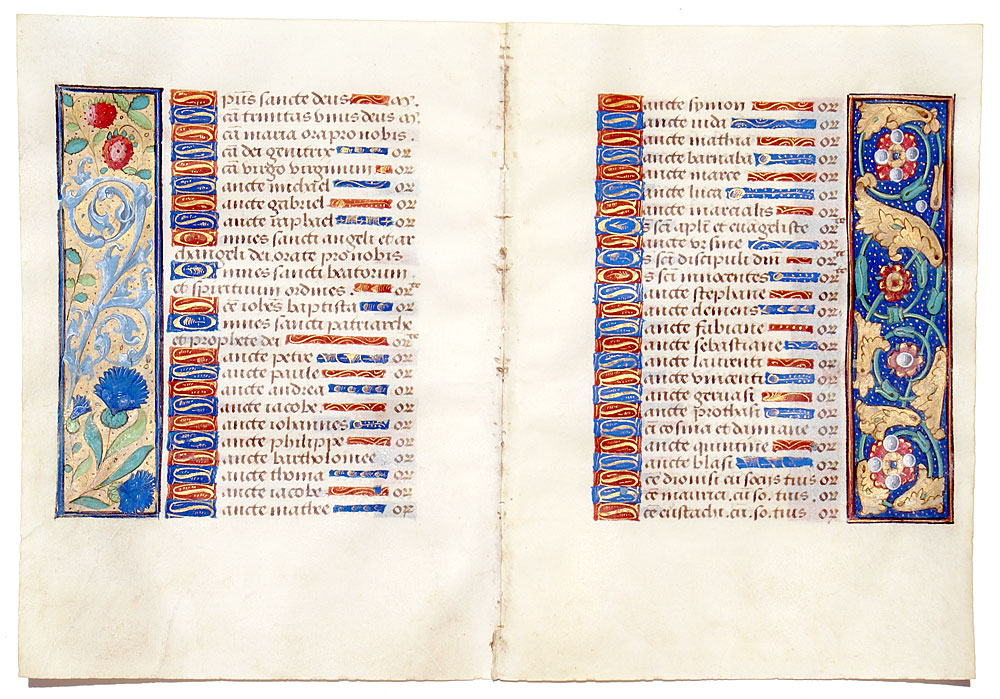 Spūs sancte deus m̄.
Scā trinitas unus deus m̄.
Scā maria ora pro nobis.
Scā dei genitrix or
Scā virgo virginum or
Sancte michael or
Sancte gabriel or
Sancte raphael or
Omnes sancti angeli et ar
changeli dei orate pro nobis
Omnes sancti beatorum
et spirituum ordines. orte
Sce iohēs baptista or
Omnes sancti patriarche
et prophete dei orte
Sancte petre or
Sancte paule or
Sancte andrea or
Sancte iacobe. or
Sancte iohannes or
Sancte philippe or
Sancte bartholomee or
Sancte thoma or
Sancte iacobe or
Sancte mathee or
Sancte symon or
Sancte iuda or
Sancte mathia or
Sancte barnaba or
Sancte marce or
Sancte luca or
Sancte marcialis or
Os scī apli et euāgeliste orte
Sancte ursine or
Os scī discipuli dnī orte
Os scī innocentes orte
Sancte stephane or
Sancte clemens or
Sancte fabiane or
Sancte sebastiane or
Sancte laurenti or
Sancte vincenti or
Sancte geruasi or
Sancte prothasi or
Sc̄i cosma et damiane or
Sancte quintine or
Sancte blasi or
Sce dionisi cū sociis tuis or
Sce maurici. cū so. tuis. or
Sce eustachi. cū. so. tuis or